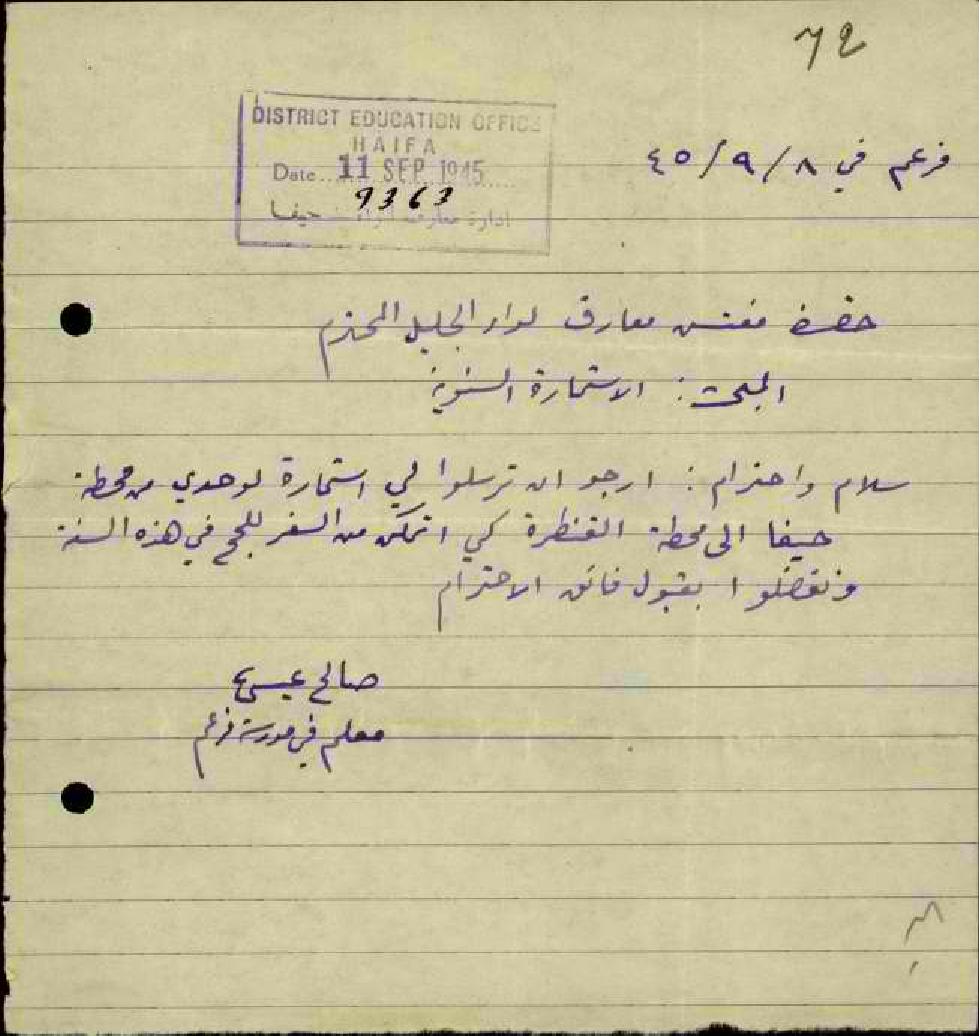 72
DISTRICT EDUCATION OFFICE
HAIFA
Date 11 SEP 1945
9363
ادارة معارف لواء حيفا
فرعم في ٤٥/٩/٨
حضرة مفتش معارف لواء الجليل المحترم
المبحث : الاستمارة السنوية
سلام واحترام : ارجو ان ترسلوا لي استمارة لوحدي من محطة
حيفا الى محطة القنطرة كي اتمكن من السفر للحج في هذه السنة
وتفضلوا بقبول فائق الاحترام
صالح عيسى
معلم في مدرسة فرعم